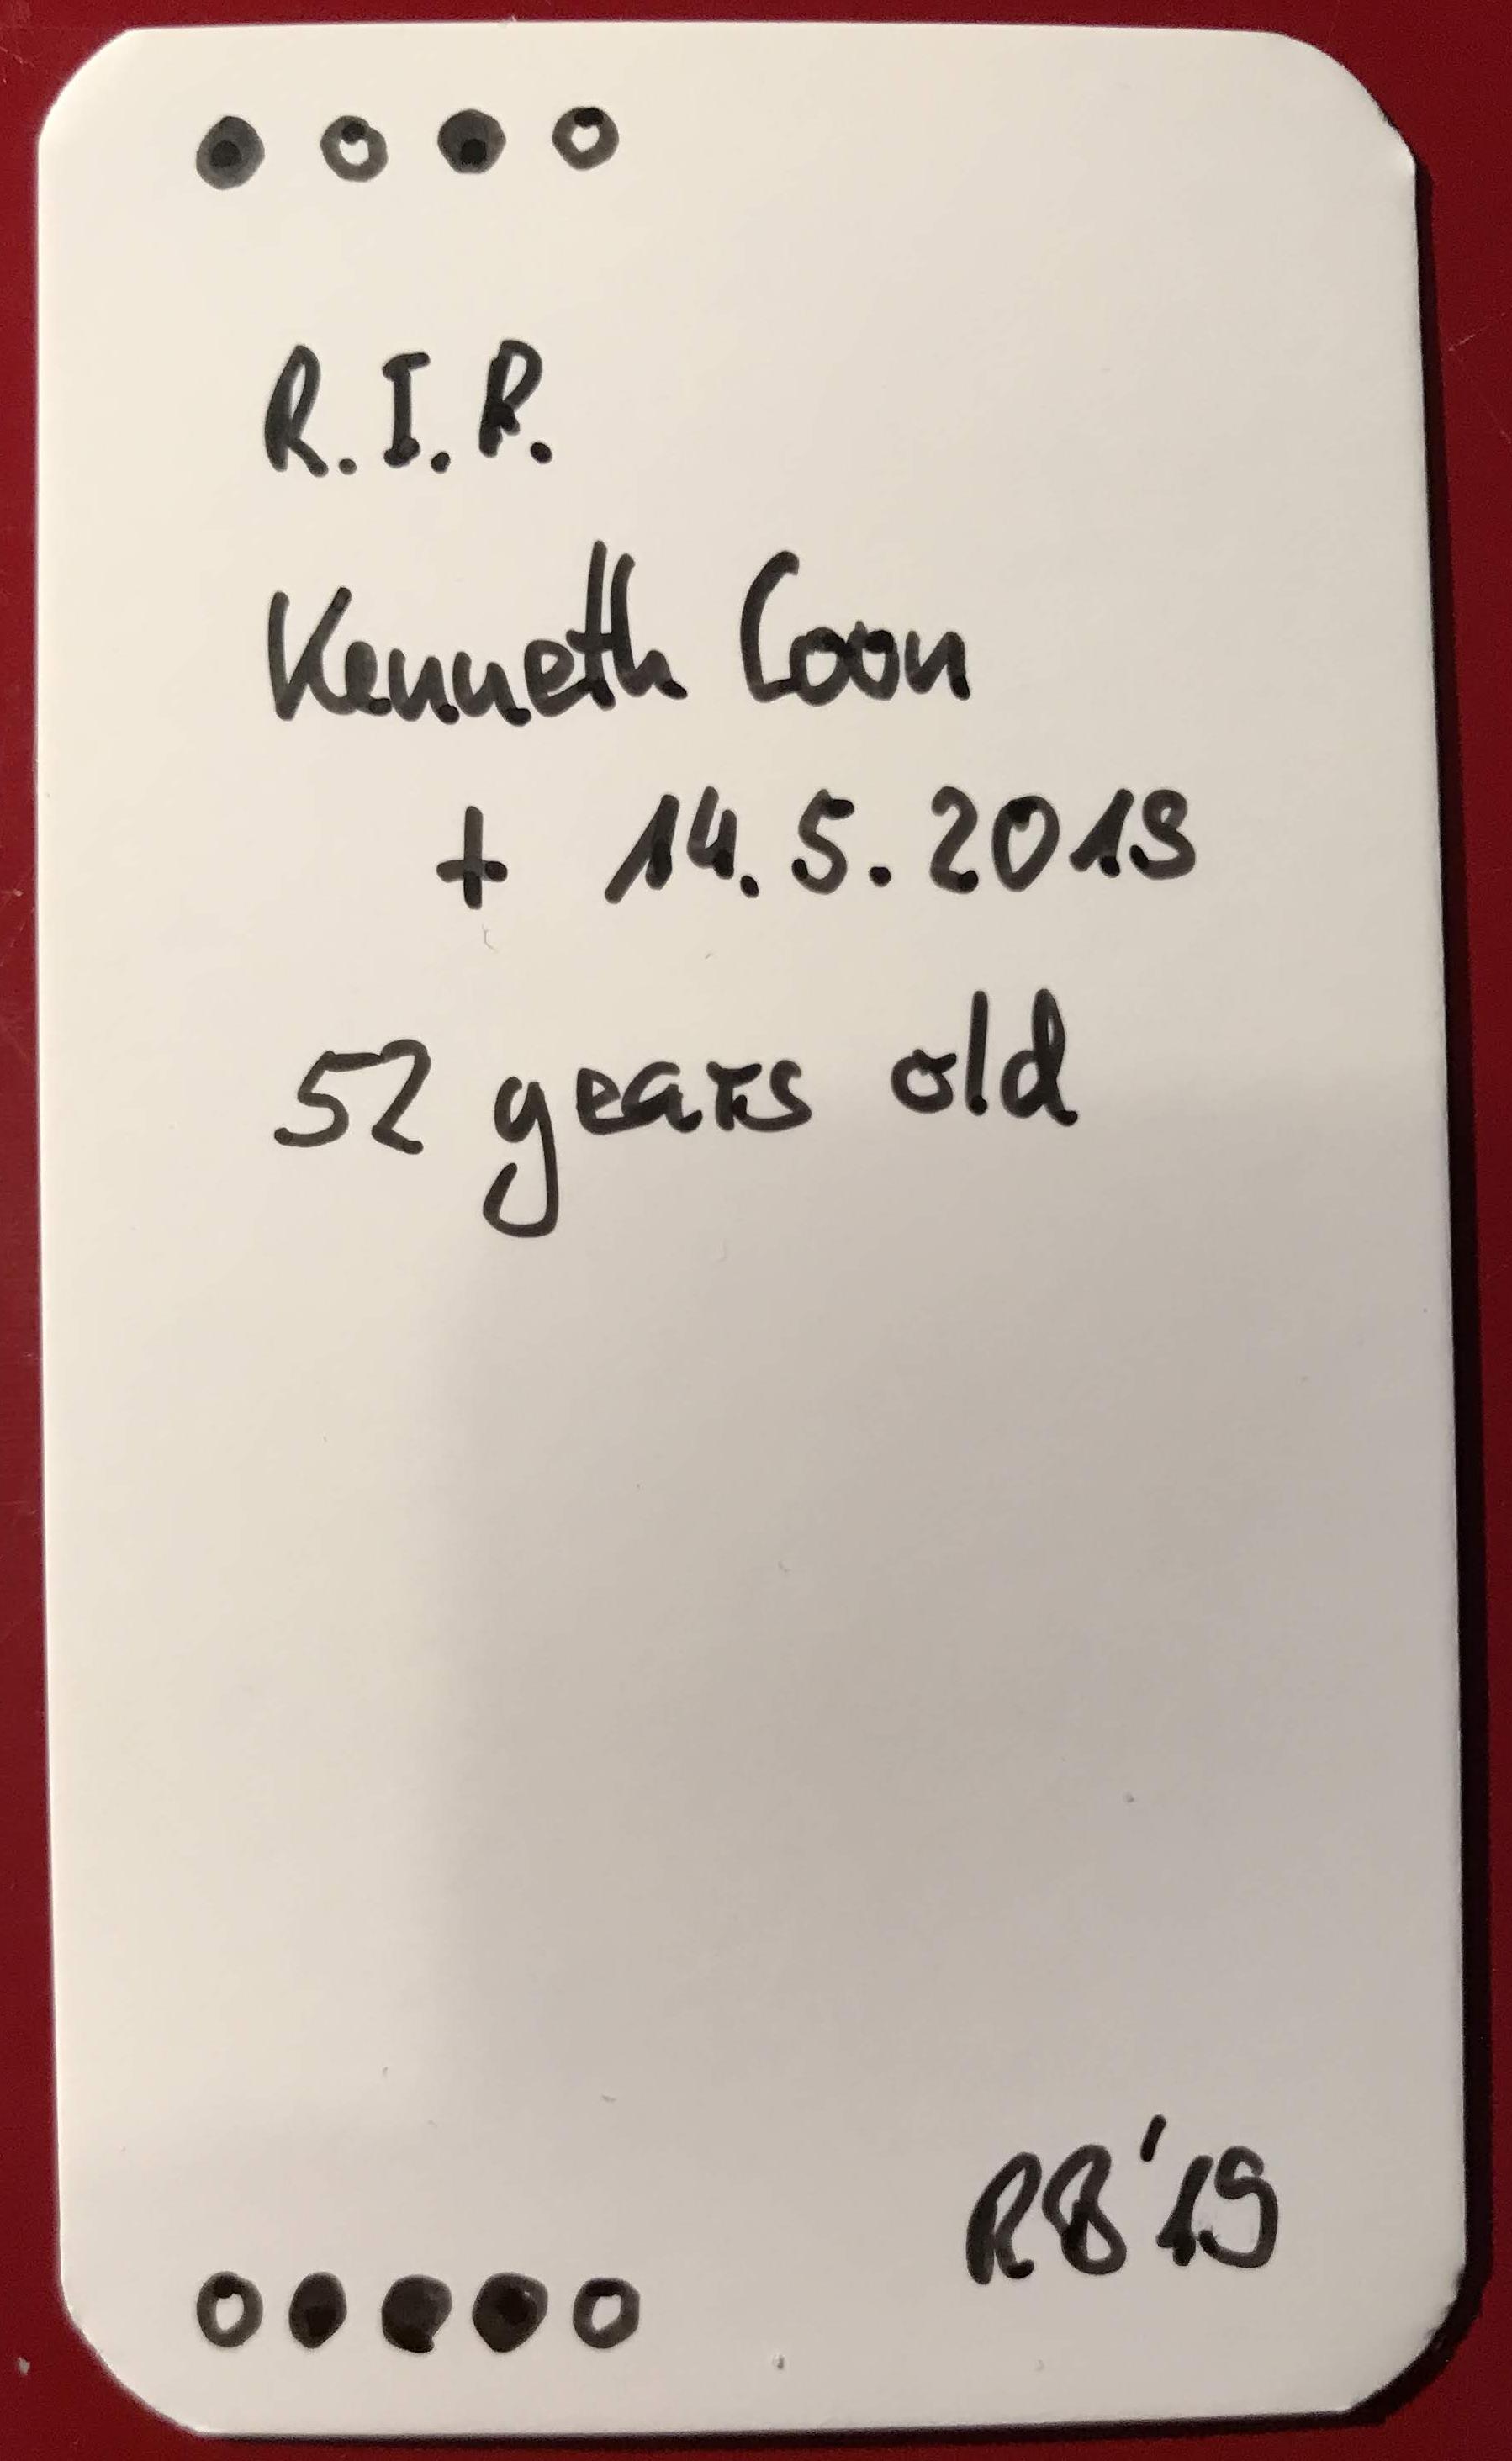 R.I.P.
Kenneth Coon
+ 14.5.2019
52 years old
RB'19